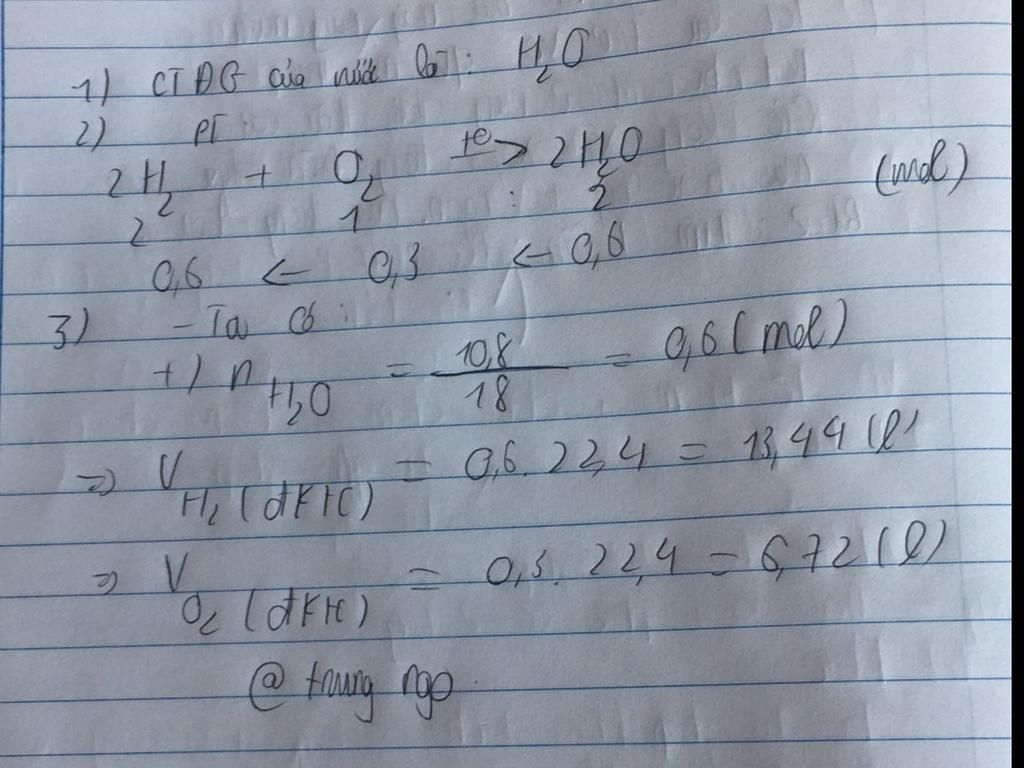 1) CTĐG của nước là: H₂O
2) PT
2H₂ + O₂ -t°-> 2H₂O
2 1 : 2 (mol)
0,6 ← 0,3 ← 0,6
3) - Ta có:
+) n H₂O = 10,8 / 18 = 0,6 (mol)
=> V H₂ (đktc) = 0,6. 22,4 = 13,44 (l)
=> V O₂ (đktc) = 0,3. 22,4 = 6,72 (l)
@ trung ngo